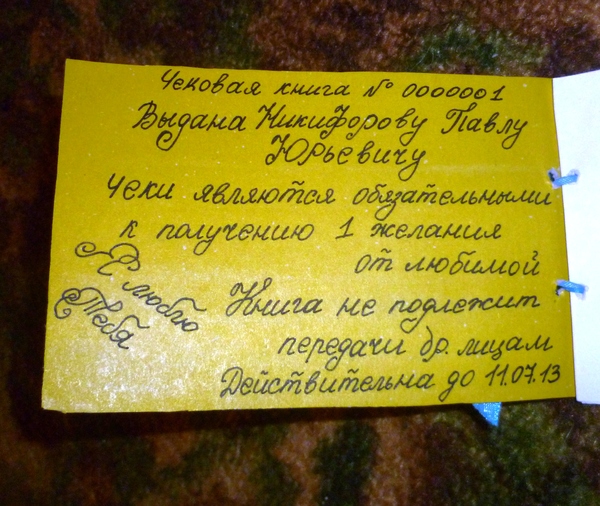 Чековая книга № 0000001
Выдана Никифорову Павлу
Юрьевичу
Чеки являются обязательными
к получению 1 желания
от любимой
Книга не подлежит
передачи др. лицам
Действительна до 11.07.13
Я люблю
Тебя